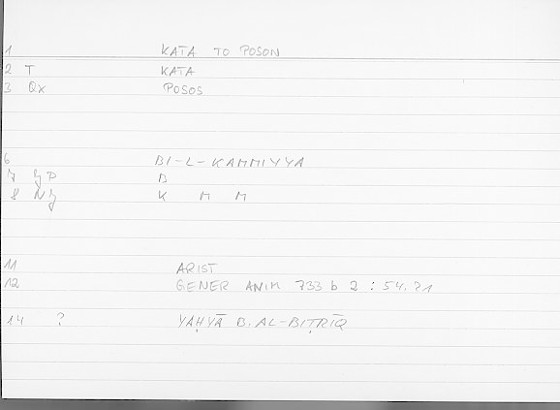 1 KATA TO POSON
2 T KATA
3 Qx POSOS
6 BI-L-KAMMIYYA
7 ȜP B
8 NȜ K M M
11 ARIST
12 GENER ANIM 733 b 2 : 54.21
14 ? YAḤYĀ B. AL-BIṬRĪQ